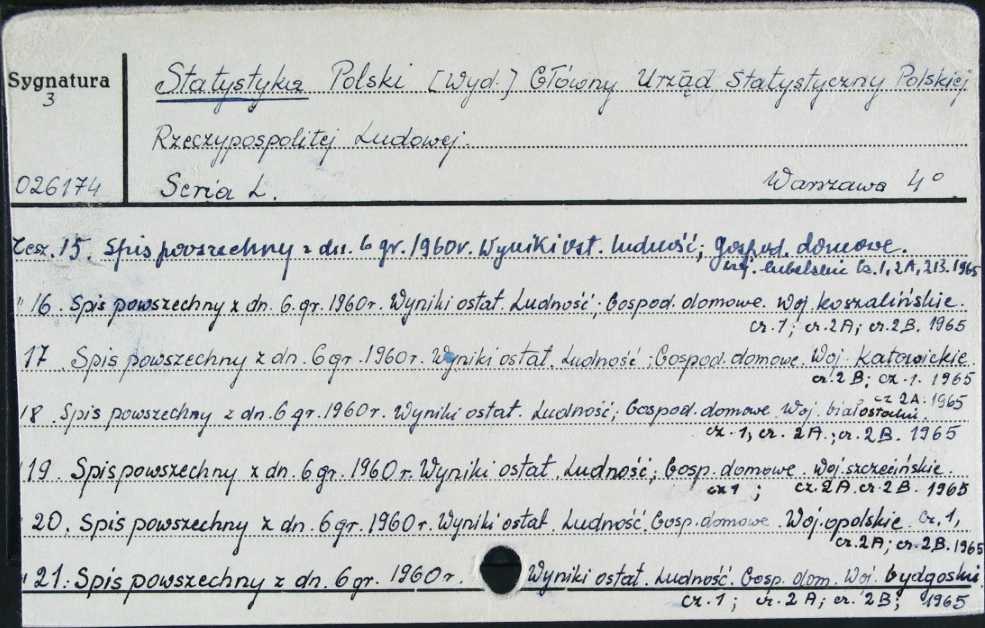 Sygnatura
3
026174
Statystyka Polski [Wyd.] Główny Urząd Statystyczny Polskiej
Rzeczypospolitej Ludowej.
Seria L. Warszawa 4°
Zesz. 15. Spis powszechny z dn. 6 gr. 1960 r. Wyniki ost. ludność; gospod. domowe.
woj. lubelskie cz. 1, 2A, 2B. 1965
" 16. Spis powszechny z dn. 6. gr. 1960 r. Wyniki ostat. Ludność; Gospod. domowe. Woj. koszalińskie.
cz. 1; cz. 2A; cz. 2B. 1965
17. Spis powszechny z dn. 6 gr. 1960 r. Wyniki ostat. Ludność; Gospod. domowe. Woj. Katowickie.
cz. 2B; cz. 1. 1965
cz 2A. 1965
18. Spis powszechny z dn. 6 gr. 1960 r. Wyniki ostat. Ludność; Gospod. domowe. Woj. białostockie.
cz. 1, cz. 2A.; cz. 2B. 1965
" 19. Spis powszechny z dn. 6. gr. 1960 r. Wyniki ostat. Ludność; Gosp. domowe. Woj. szczecińskie.
cz 1; cz. 2A. cz. 2B. 1965
" 20. Spis powszechny z dn. 6 gr. 1960 r. Wyniki ostat. Ludność Gosp. domowe Woj. opolskie. cz. 1,
cz. 2A; cz. 2B. 1965
" 21. Spis powszechny z dn. 6 gr. 1960 r. Wyniki ostat. Ludność. Gosp. dom. Woj. bydgoski.
cz. 1; cz. 2A; cz. 2B; 1965